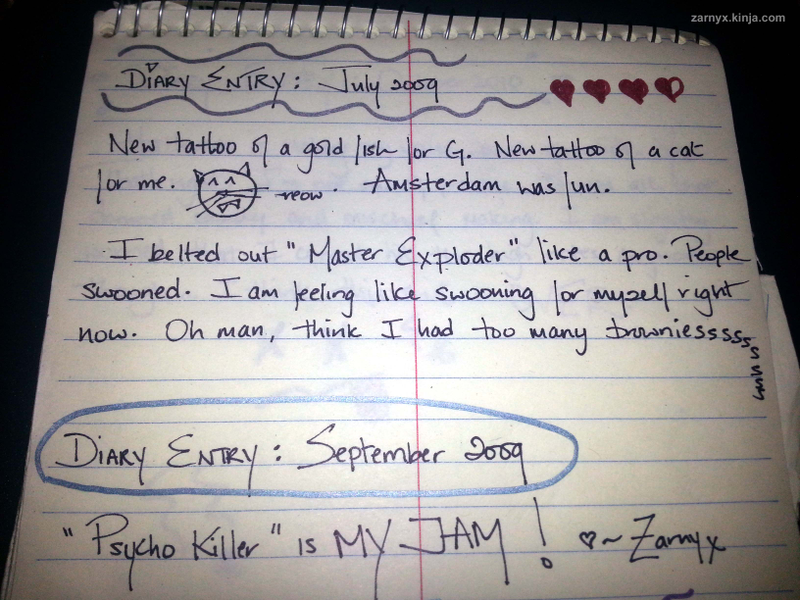 zarnyx.kinja.com
DIARY ENTRY: July 2009
New tattoo of a gold fish for G. New tattoo of a cat
for me. meow. Amsterdam was fun.
I belted out "Master Exploder" like a pro. People
swooned. I am feeling like swooning for myself right
now. Oh man, think I had too many browniessssssss
DIARY ENTRY: September 2009
"Psycho Killer" is MY JAM! ♡~ Zarnyx